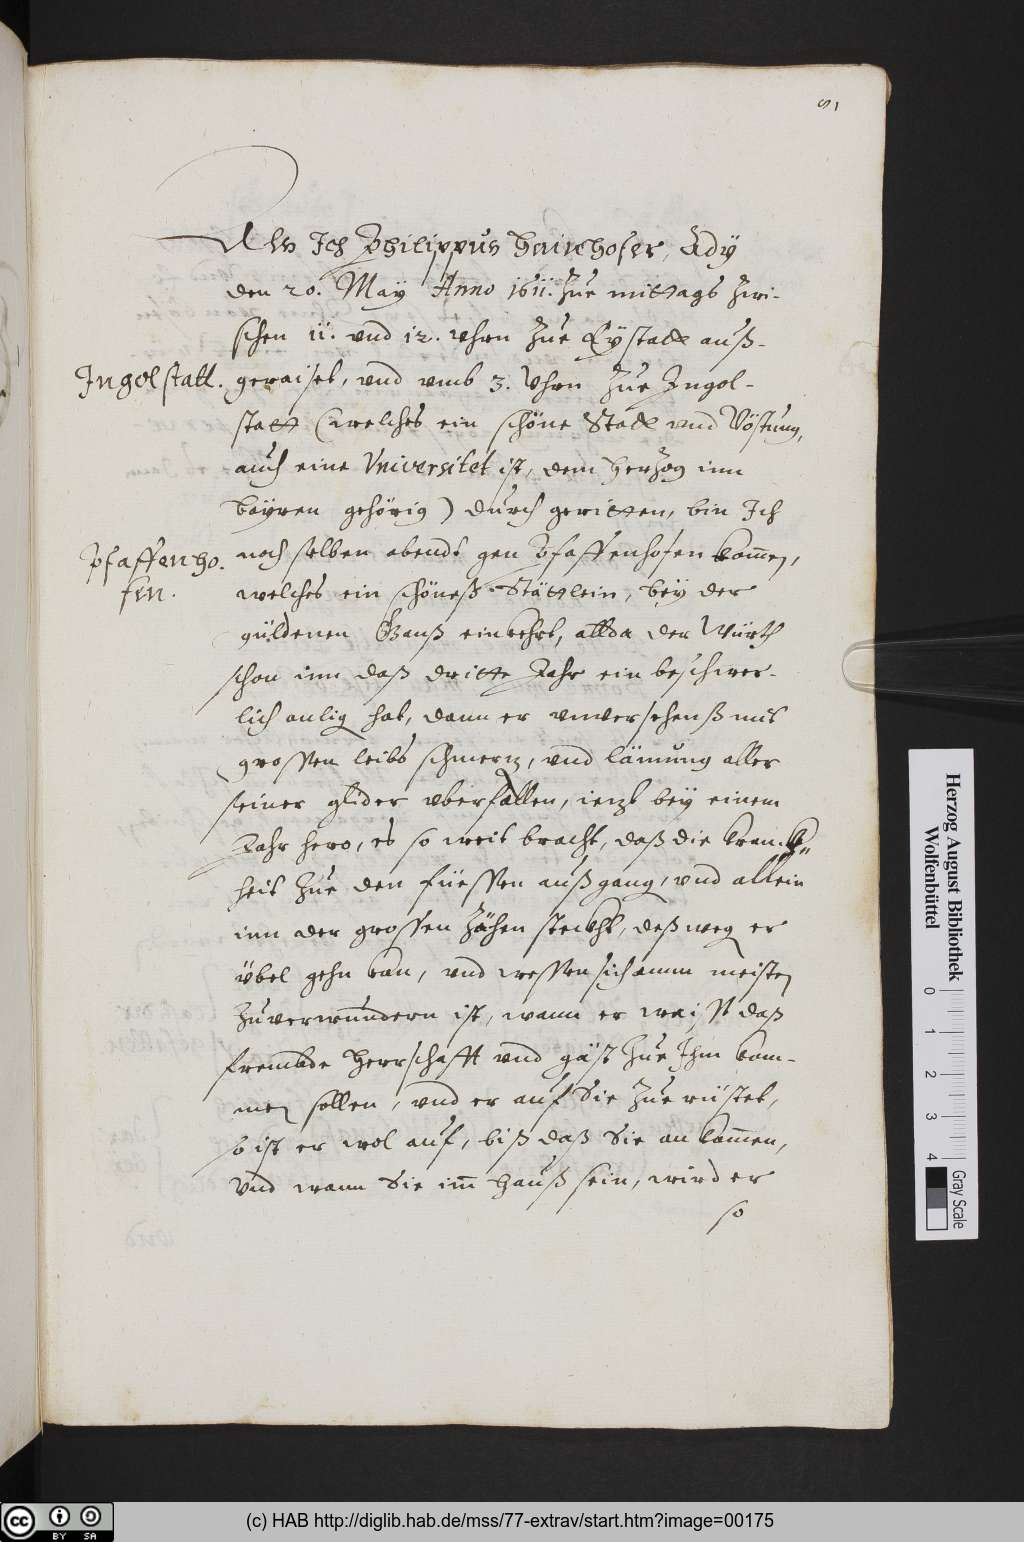 81
Als Ich Philippus Hainhofer, Adÿ
den 20. Maÿ Anno 1611. Zue mittags zwi-
schen 11. vnd 12. vhrn Zue Eÿstatt auß-
Ingolstatt. geraiset, vnd vmb 3. Vhrn Zue Ingol-
statt (welches ein schöne Statt vnd Vöstung,
auch eine Vniversitet ist, dem Herzog inn
Baÿren gehörig) durch geritten, bin Ich
Pfaffenho. noch selben abendt gen Pfaffenhofen kom̄en,
fen. welches ein schöneß Stättlein, beÿ der
güldenen Ganß einkehrt, allda der Würth
schon inn daß dritte Jahr ein beschwer-
lich anlig hat, dann er vnversehenß mit
grossen leibs schmerz, vnd lämung aller
seiner glider vberfallen, iezt beÿ einem
Jahr hero, es so weit bracht, daß die kranck-
heit Zue den füessen außgang, vnd allein
inn der grossen Zähen steckht, deßweg er
übel gehn kan, vnd wessen sich amm meisten
Zuverwundern ist, wann er waist daß
frembde Herrschafft vnd gäst Zue Ihm kom-
men sollen, vnd er auf Sie Zue rüstet,
so ist er wol auf, biß daß Sie an kom̄en,
Vnd wann Sie im̄ Hauß sein, wird er
so
Herzog August Bibliothek
Wolfenbüttel
0 1 2 3 4
Gray Scale
cc BY SA
(c) HAB http://diglib.hab.de/mss/77-extrav/start.htm?image=00175